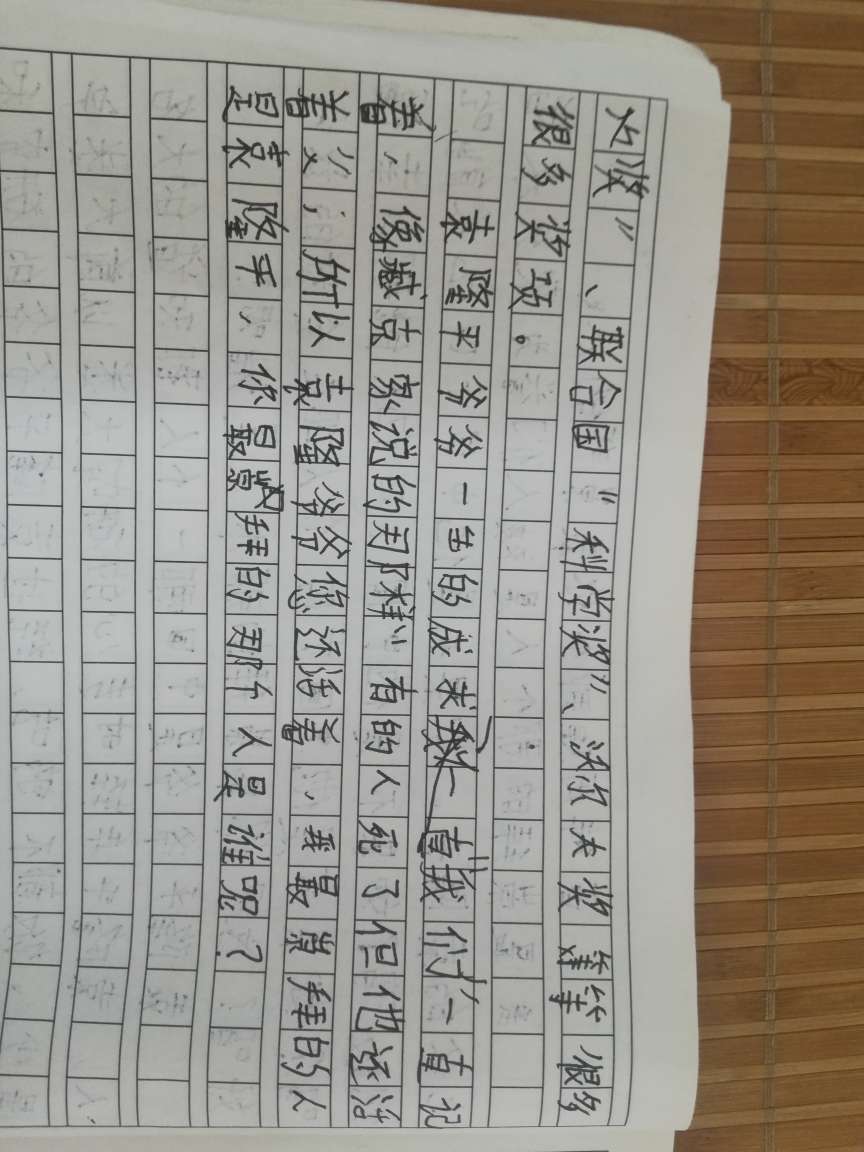 人奖”、联合国“科学奖”、沃尔夫奖等等很多
很多奖项。
袁隆平爷爷一生的成求我们一直记
着，像臧克家说的那样“有的人死了但他还活
着”，所以袁隆爷爷您还活着，我最赏拜的人
是袁隆平，你最赏拜的那个人是谁呢？